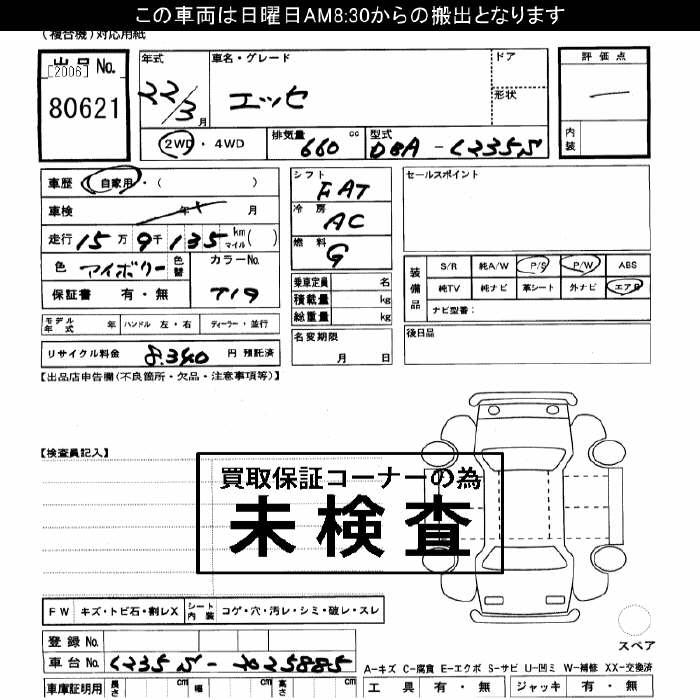 この車両は日曜日AM8:30からの搬出となります
(複合機)対応用紙
出品No.
[2006]
80621
年式
22/3月
車名・グレード
エッセ
ドア
形状
評価点
内装
2WD・4WD
排気量 660 cc
型式 DBA-L235S
車歴 自家用・( )
車検 年 月
走行 15万9千135 km マイル( )
色 アイボリー 色替
カラーNo. T19
保証書 有・無
シフト FAT
冷房 AC
燃料 G
乗車定員 名
積載量 kg
総重量 kg
セールスポイント
装備品
S/R 純A/W P/S P/W ABS
純TV 純ナビ 革シート 外ナビ エアB
ナビ型番:
モデル年式 年 ハンドル 左・右 ディーラー・並行
リサイクル料金 8,340 円 預託済
名変期限
月 日
後日品
【出品店申告欄(不良箇所・欠品・注意事項等)】
【検査員記入】
買取保証コーナーの為
未検査
FW キズ・トビ石・割レX シート内装 コゲ・穴・汚レ・シミ・破レ・スレ
登録No.
車台No. L235S-2025885
スペア
A-キズ C-腐食 E-エクボ S-サビ U-凹ミ W-補修 XX-交換済
車庫証明用 長さ cm 幅 cm 高さ cm
工具 有・無 ジャッキ 有・無